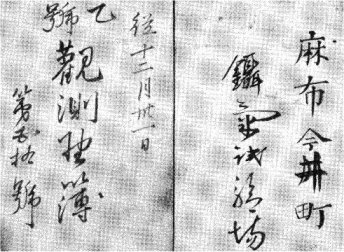 麻布今井町
鑷気試験場
従十二月卅一日
乙號
観測野簿
第五拾號